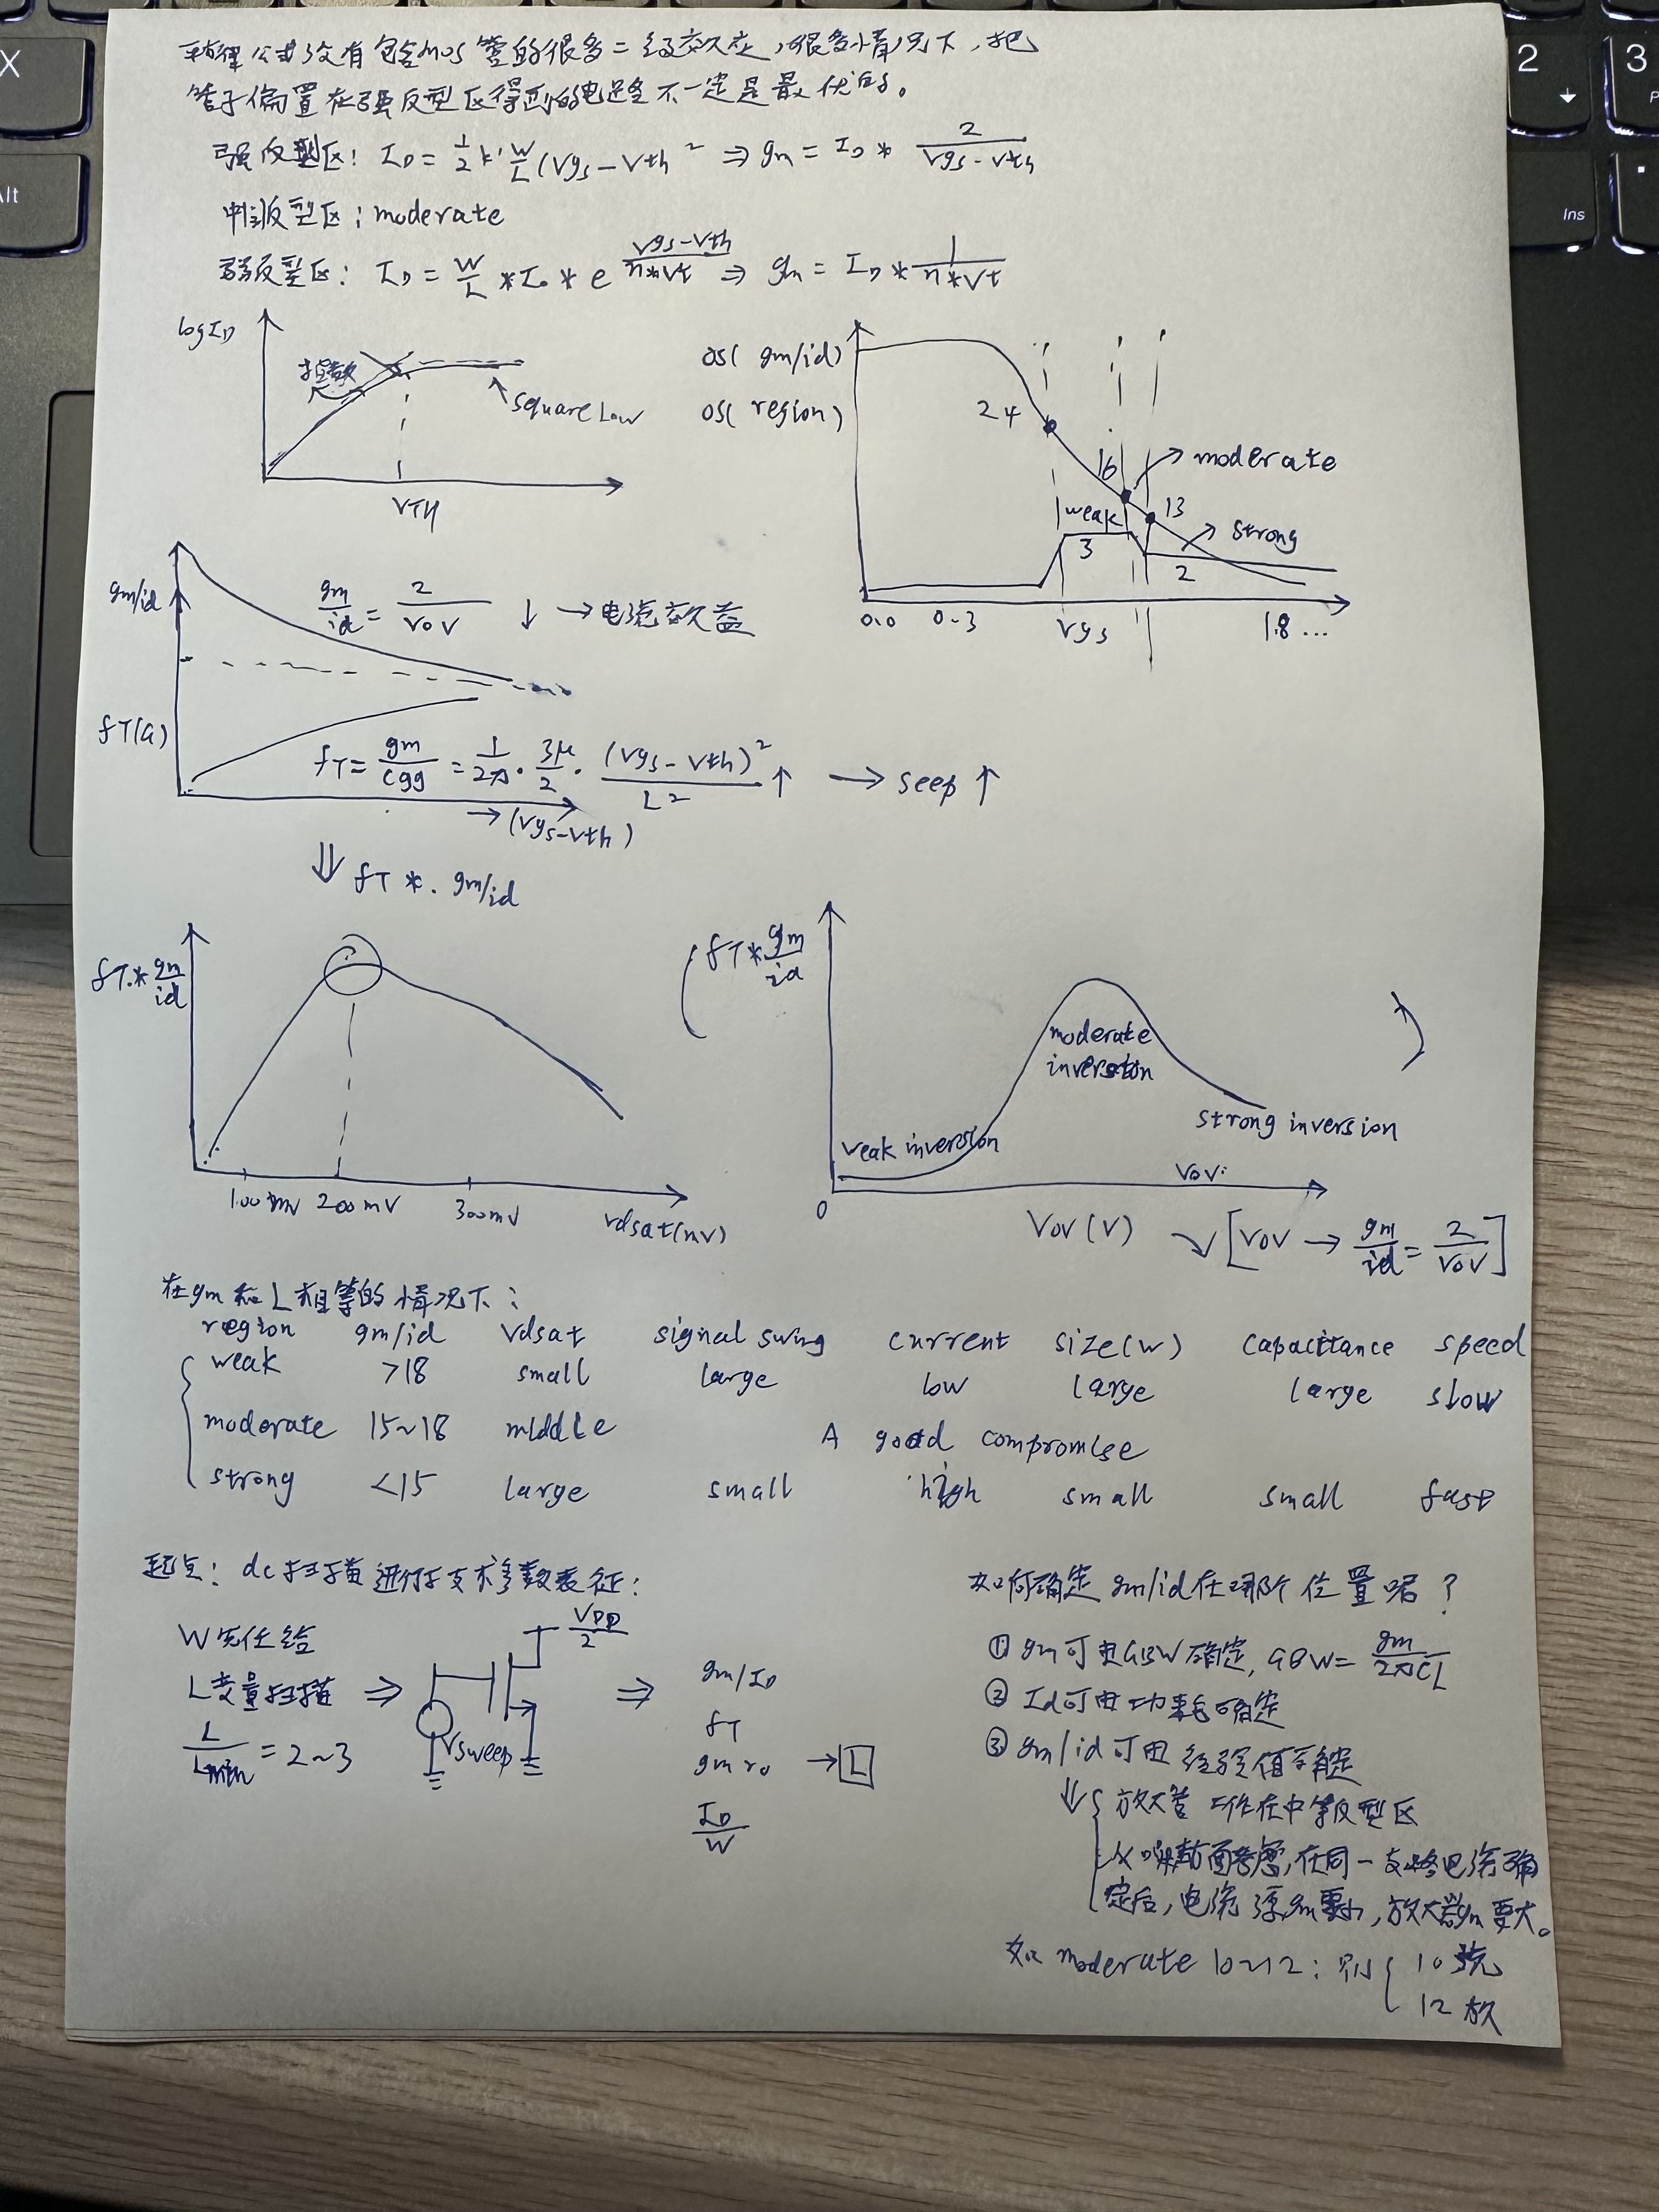 平方律公式没有包含MOS管的很多二级效应,很多情况下,把
管子偏置在强反型区得到的电路不一定是最优的。
强反型区: ID = 1/2 k' W/L (Vgs-Vth ² ⇒ gm = ID * 2/(Vgs-Vth)
中等反型区: moderate
弱反型区: ID = W/L * I₀ * e^((Vgs-Vth)/(n*Vt)) ⇒ gm = ID * 1/(n*Vt)
log ID
指数
square Law
VTH
OS( gm/id)
OS( region)
24
16
moderate
weak
13
3
strong
2
0.0 0.3 Vgs 1.8 ...
gm/id
gm/id = 2/VOV ↓ → 电流效益
fT(G)
fT = gm/cgg = 1/2π · 3μ/2 · (Vgs-Vth)²/L² ↑ → seep ↑
→ (Vgs-Vth)
⇓ fT *. gm/id
fT.* gm/id
100mV 200mV 300mV vdsat(mV)
( fT * gm/id )
moderate
inversion
weak inversion
strong inversion
VOV
0
VOV (V) ↘ [VOV → gm/id = 2/VOV]
在gm和L相等的情况下:
region gm/id vdsat signal swing current size(w) capacitance speed
weak >18 small large low large large slow
moderate 15~18 middle A good compromise
strong <15 large small high small small fast
起点: dc扫描进行技术参数表征:
W先任给
L变量扫描 ⇒
L/Lmin = 2~3
VDD/2
Vsweep
⇒
gm/ID
fT
gm ro → L
ID/W
如何确定gm/id在哪个位置呢?
① gm可由GBW确定, GBW = gm/2πCL
② Id可由功耗确定
③ gm/id可由经验值确定
⇓ { 放大管工作在中等反型区
从噪声方面考虑,在同一支路电流确
定后,电流源gm要小,放大器gm要大。
如 moderate 10~12: 则 { 10 流
12 放